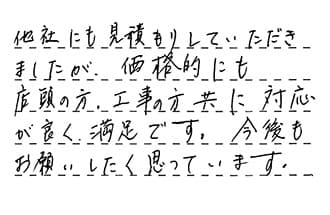 他社にも見積もりしていただき
ましたが、価格的にも
店頭の方、工事の方共に対応
が良く満足です。今後も
お願いしたく思っています。